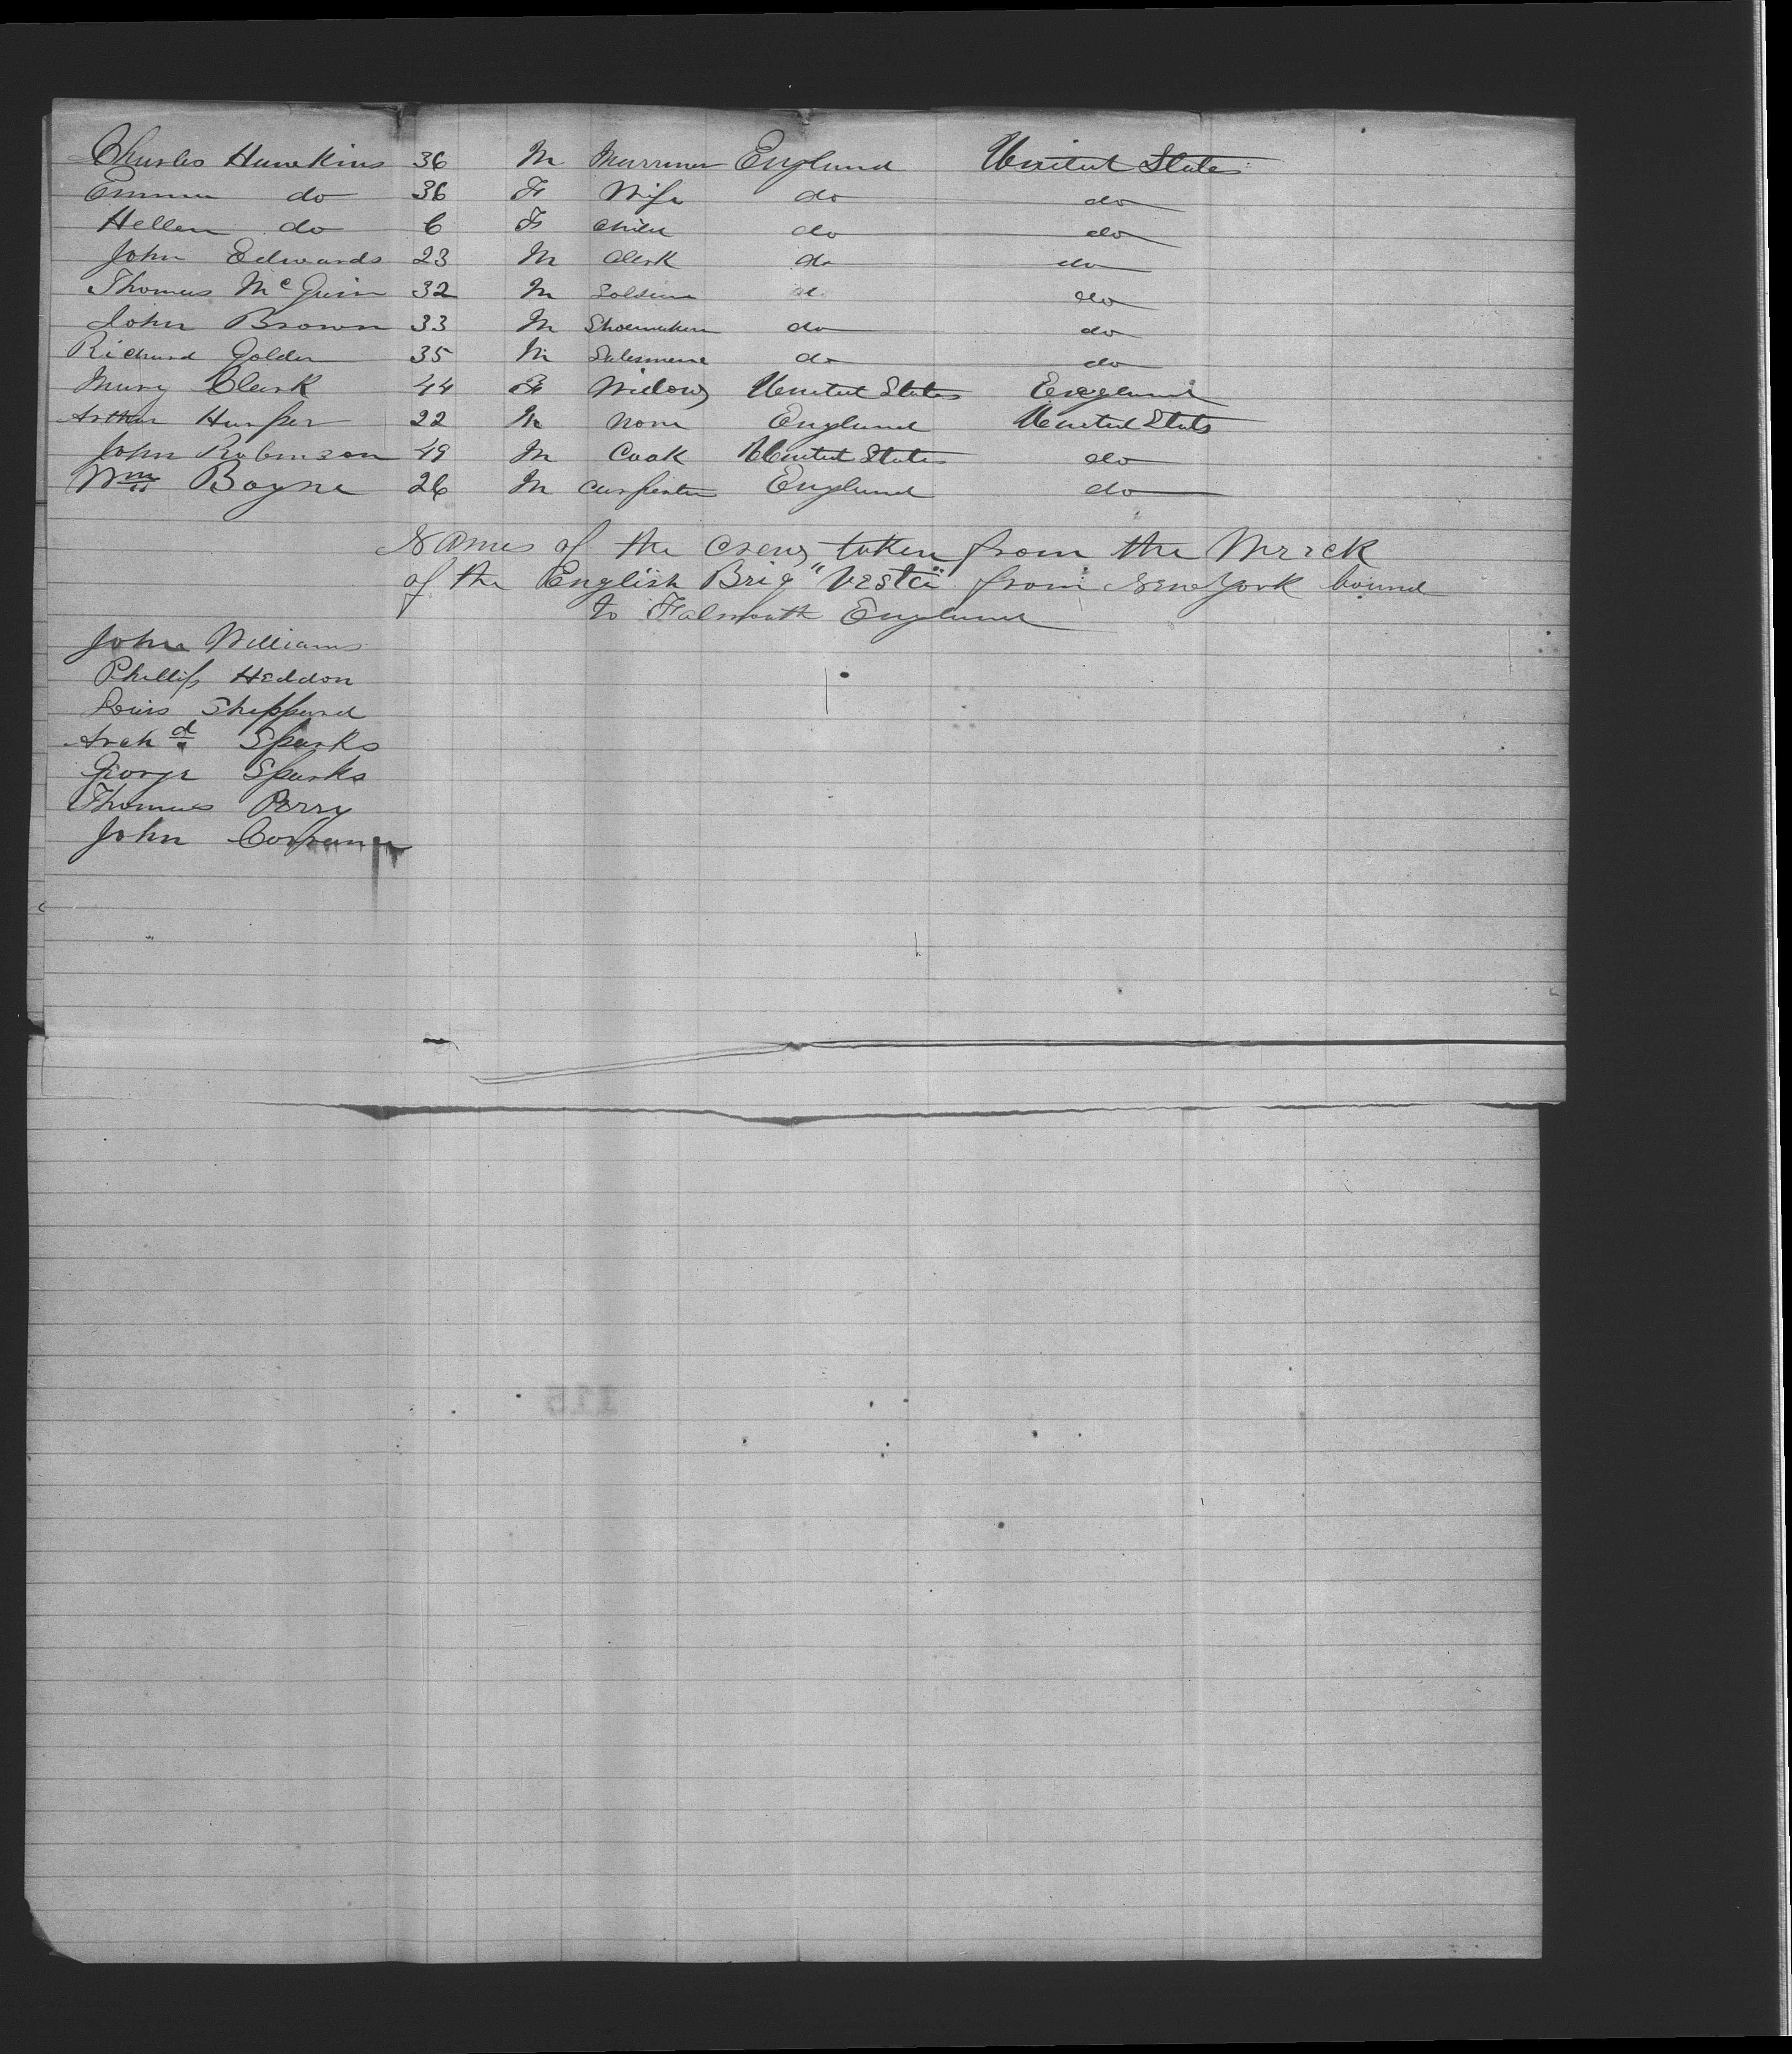 Charles Hawkins 36 M Marriner England United States
Emma do 36 F Wife do do
Hellen do 6 F Child do do
John Edwards 23 M Clerk do do
Thomas McGuin 32 M do
John Brown 33 M Shoemaker do do
Richard Golden 35 M Salesman do do
Mary Clark 44 F Widow United States England
Arthur Harper 22 M None England United States
John Robinson 49 M Cook United States do
Wm Boyne 26 M Carpenter England do
Names of the Crew taken from the Wreck
of the English Brig "Vesta" from New York bound
to Falmouth England
John Williams
Phillip Heddon
Louis Sheppard
Archd Sparks
George Sparks
Thomas Perry
John